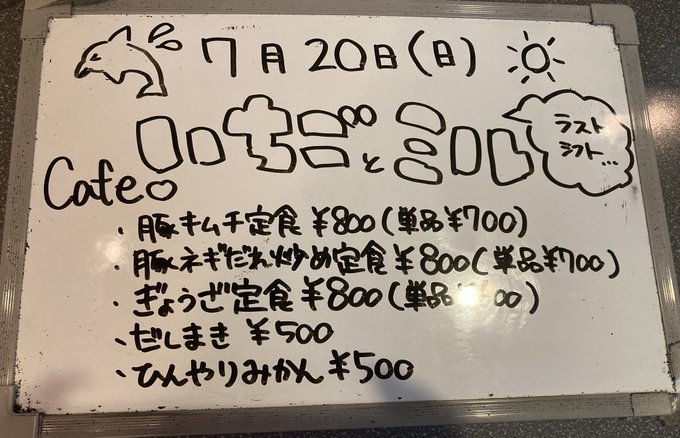 7月20日(日)
とミル
ラスト
シフト...
Cafe
・豚キムチ定食 ¥800(単品¥700)
・豚ネギだれ炒め定食 ¥800(単品¥700)
・ぎょうざ定食 ¥800(単品
・だしまき ¥500
・ひんやりみかん ¥500